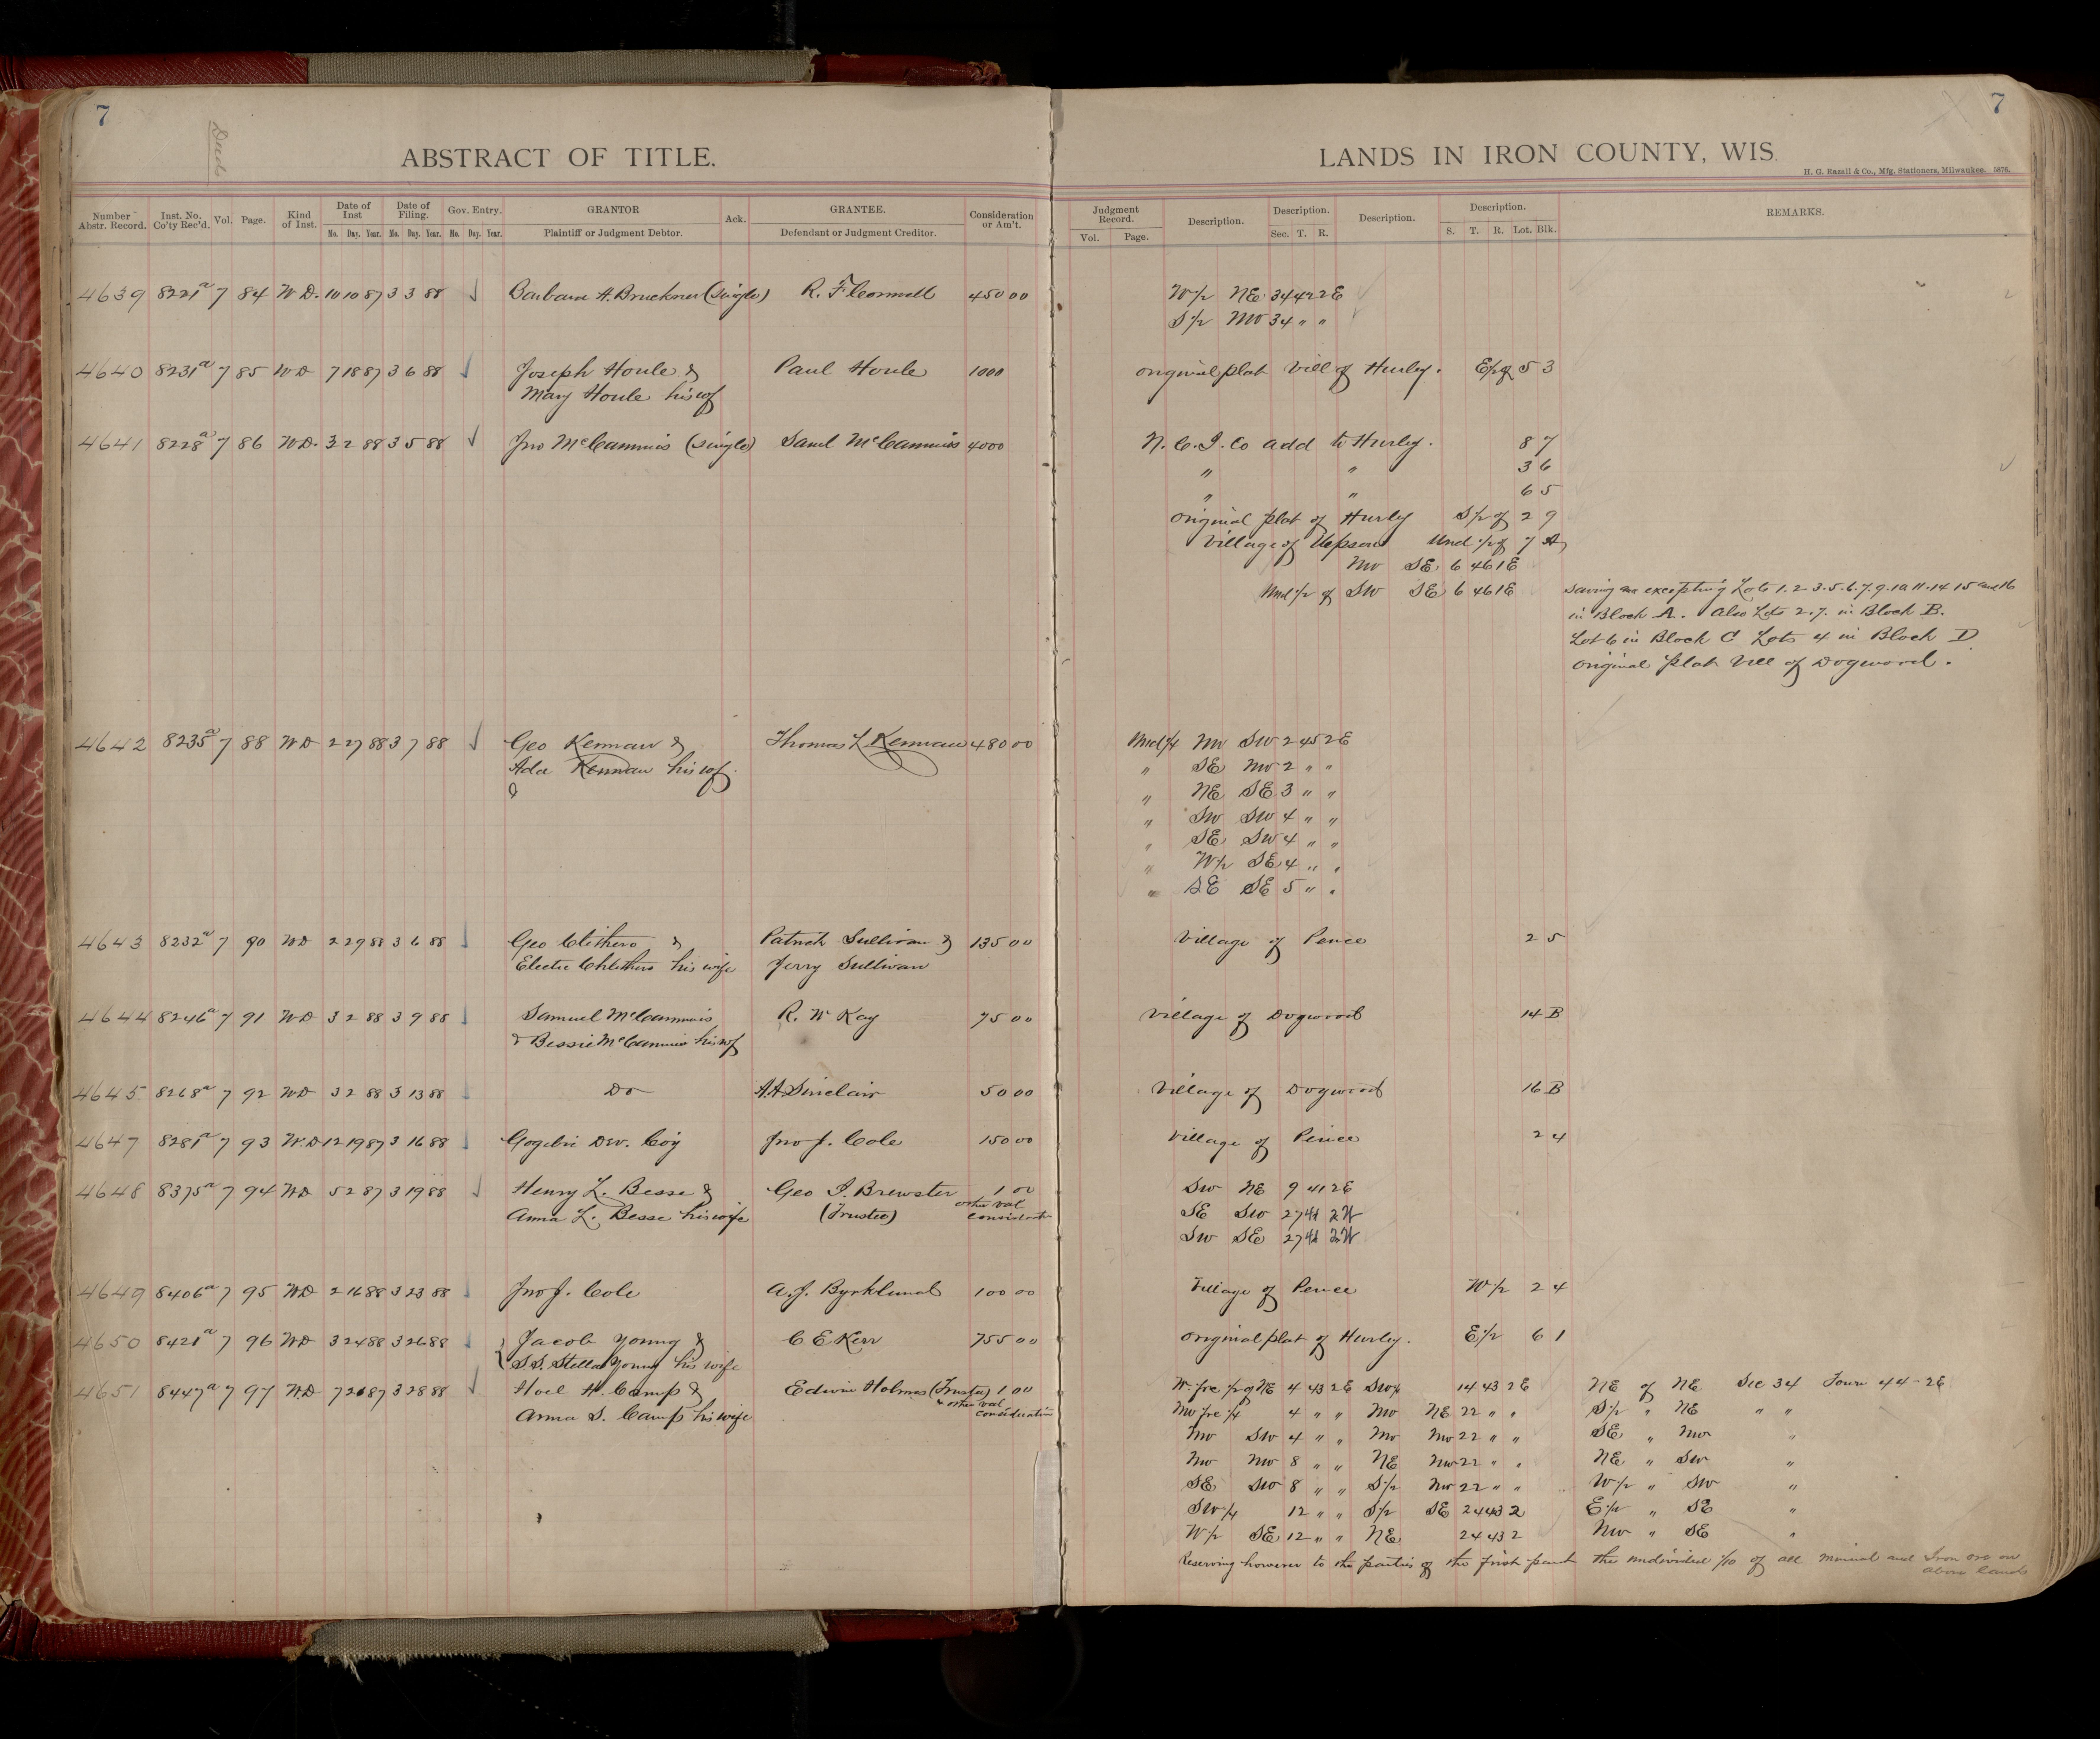 7
Deed
ABSTRACT OF TITLE.
Number Abstr. Record. Inst. No. Co'ty Rec'd. Vol. Page. Kind of Inst. Date of Inst Mo. Day. Year. Date of Filing. Mo. Day. Year. Gov. Entry. Mo. Day. Year. GRANTOR Plaintiff or Judgment Debtor. Ack. GRANTEE. Defendant or Judgment Creditor. Consideration or Am't.
4639 8221a 7 84 W D. 10 10 87 3 3 88 Barbara A. Bruckner (single) R. F Connell 450 00
4640 8231a 7 85 W D 7 18 87 3 6 88 Joseph Houle & Paul Houle 1000
Mary Houle his wf
4641 8228a 7 86 W D. 3 2 88 3 5 88 Jno McCammis (single) Saml McCammis 4000
4642 8235a 7 88 W D 2 27 88 3 7 88 Geo Kennan & Thomas L Kennan 480 00
Ada Kennan his wf.
&
4643 8232a 7 90 W D 2 29 88 3 6 88 Geo Clithero & Patrick Sullivan & 135 00
his wife Jerry Sullivan
4644 8246a 7 91 W D 3 2 88 3 9 88 Samuel McCammis R. W Kay 75 00
& Bessie McCammis his wf
4645 8268a 7 92 W D 3 2 88 3 13 88 Do A. A. Sinclair 50 00
4647 8281a 7 93 W. D 12 19 87 3 16 88 Gogebic Dev. Co'y Jno J. Cole 150 00
4648 8375a 7 94 W D 5 2 87 3 19 88 Henry L. Besse & Geo I. Brewster 1 00
Anna L. Besse his wife (Trustee) other val considerat
4649 8406a 7 95 W D 2 16 88 3 23 88 Jno J. Cole A. J. Byrklund 100 00
4650 8421a 7 96 W D 3 24 88 3 26 88 Jacob Young & C E Kerr 755 00
S.S. Stella Young his wife
4651 8447a 7 97 W. D 7 26 87 3 28 88 Hoel H. Camp & Edwin Holmes (Trustee) 1 00
Anna S. Camp his wife & other val consideration
7
LANDS IN IRON COUNTY, WIS.
H. G. Razall & Co., Mfg. Stationers, Milwaukee. 5876.
Judgment Record. Vol. Page. Description. Description. Sec. T. R. Description. Description. S. T. R. Lot. Blk. REMARKS.
W 1/2 NE 34 42 2E
S 1/2 NW 34 " "
original plat Vill of Hurley. E 1/2 of 5 3
N. C. I. Co add to Hurley. 8 7
" " 3 6
" " 6 5
original plat of Hurley S 1/2 of 2 9
Village of Upson Und 1/2 of 7 A
NW SE 6 46 1E
Und 1/2 of SW SE 6 46 1E Saving and excepting Lots 1. 2 3. 5. 6. 7. 9. 10 11. 14 15 and 16
in Block A. Also Lots 2. 7. in Block B.
Lot 6 in Block C Lots 4 in Block D
original Plat Vill of Dogwood.
Und 1/4 NW SW 2 45 2E
" SE NW 2 " "
" NE SE 3 " "
" SW SW 4 " "
" SE SW 4 " "
" W 1/2 SE 4 " "
" SE SE 5 " "
Village of Pence 2 5
Village of Dogwood 14 B
Village of Dogwood 16 B
Village of Pence 2 4
SW NE 9 41 2E
SE SW 27 41 2W
SW SE 27 41 2W
Village of Pence W 1/2 2 4
original plat of Hurley. E 1/2 6 1
W. fre 1/2 of NE 4 43 2E SW 1/4 14 43 2E NE of NE Sec 34 Town 44-2E
NW fre 1/4 4 " " NW NE 22 " " S 1/2 " NE " "
NW SW 4 " " NW NW 22 " " SE " NW "
NW NW 8 " " NE NW 22 " " NE " SW "
SE SW 8 " " S 1/2 NW 22 " " W 1/2 " SW "
SW 1/4 12 " " S 1/2 SE 24 43 2 E 1/2 " SE "
W 1/2 SE 12 " " NE 24 43 2 NW " SE "
Reserving however to the parties of the first part the undivided 1/10 of all mineral and Iron ore on
above lands